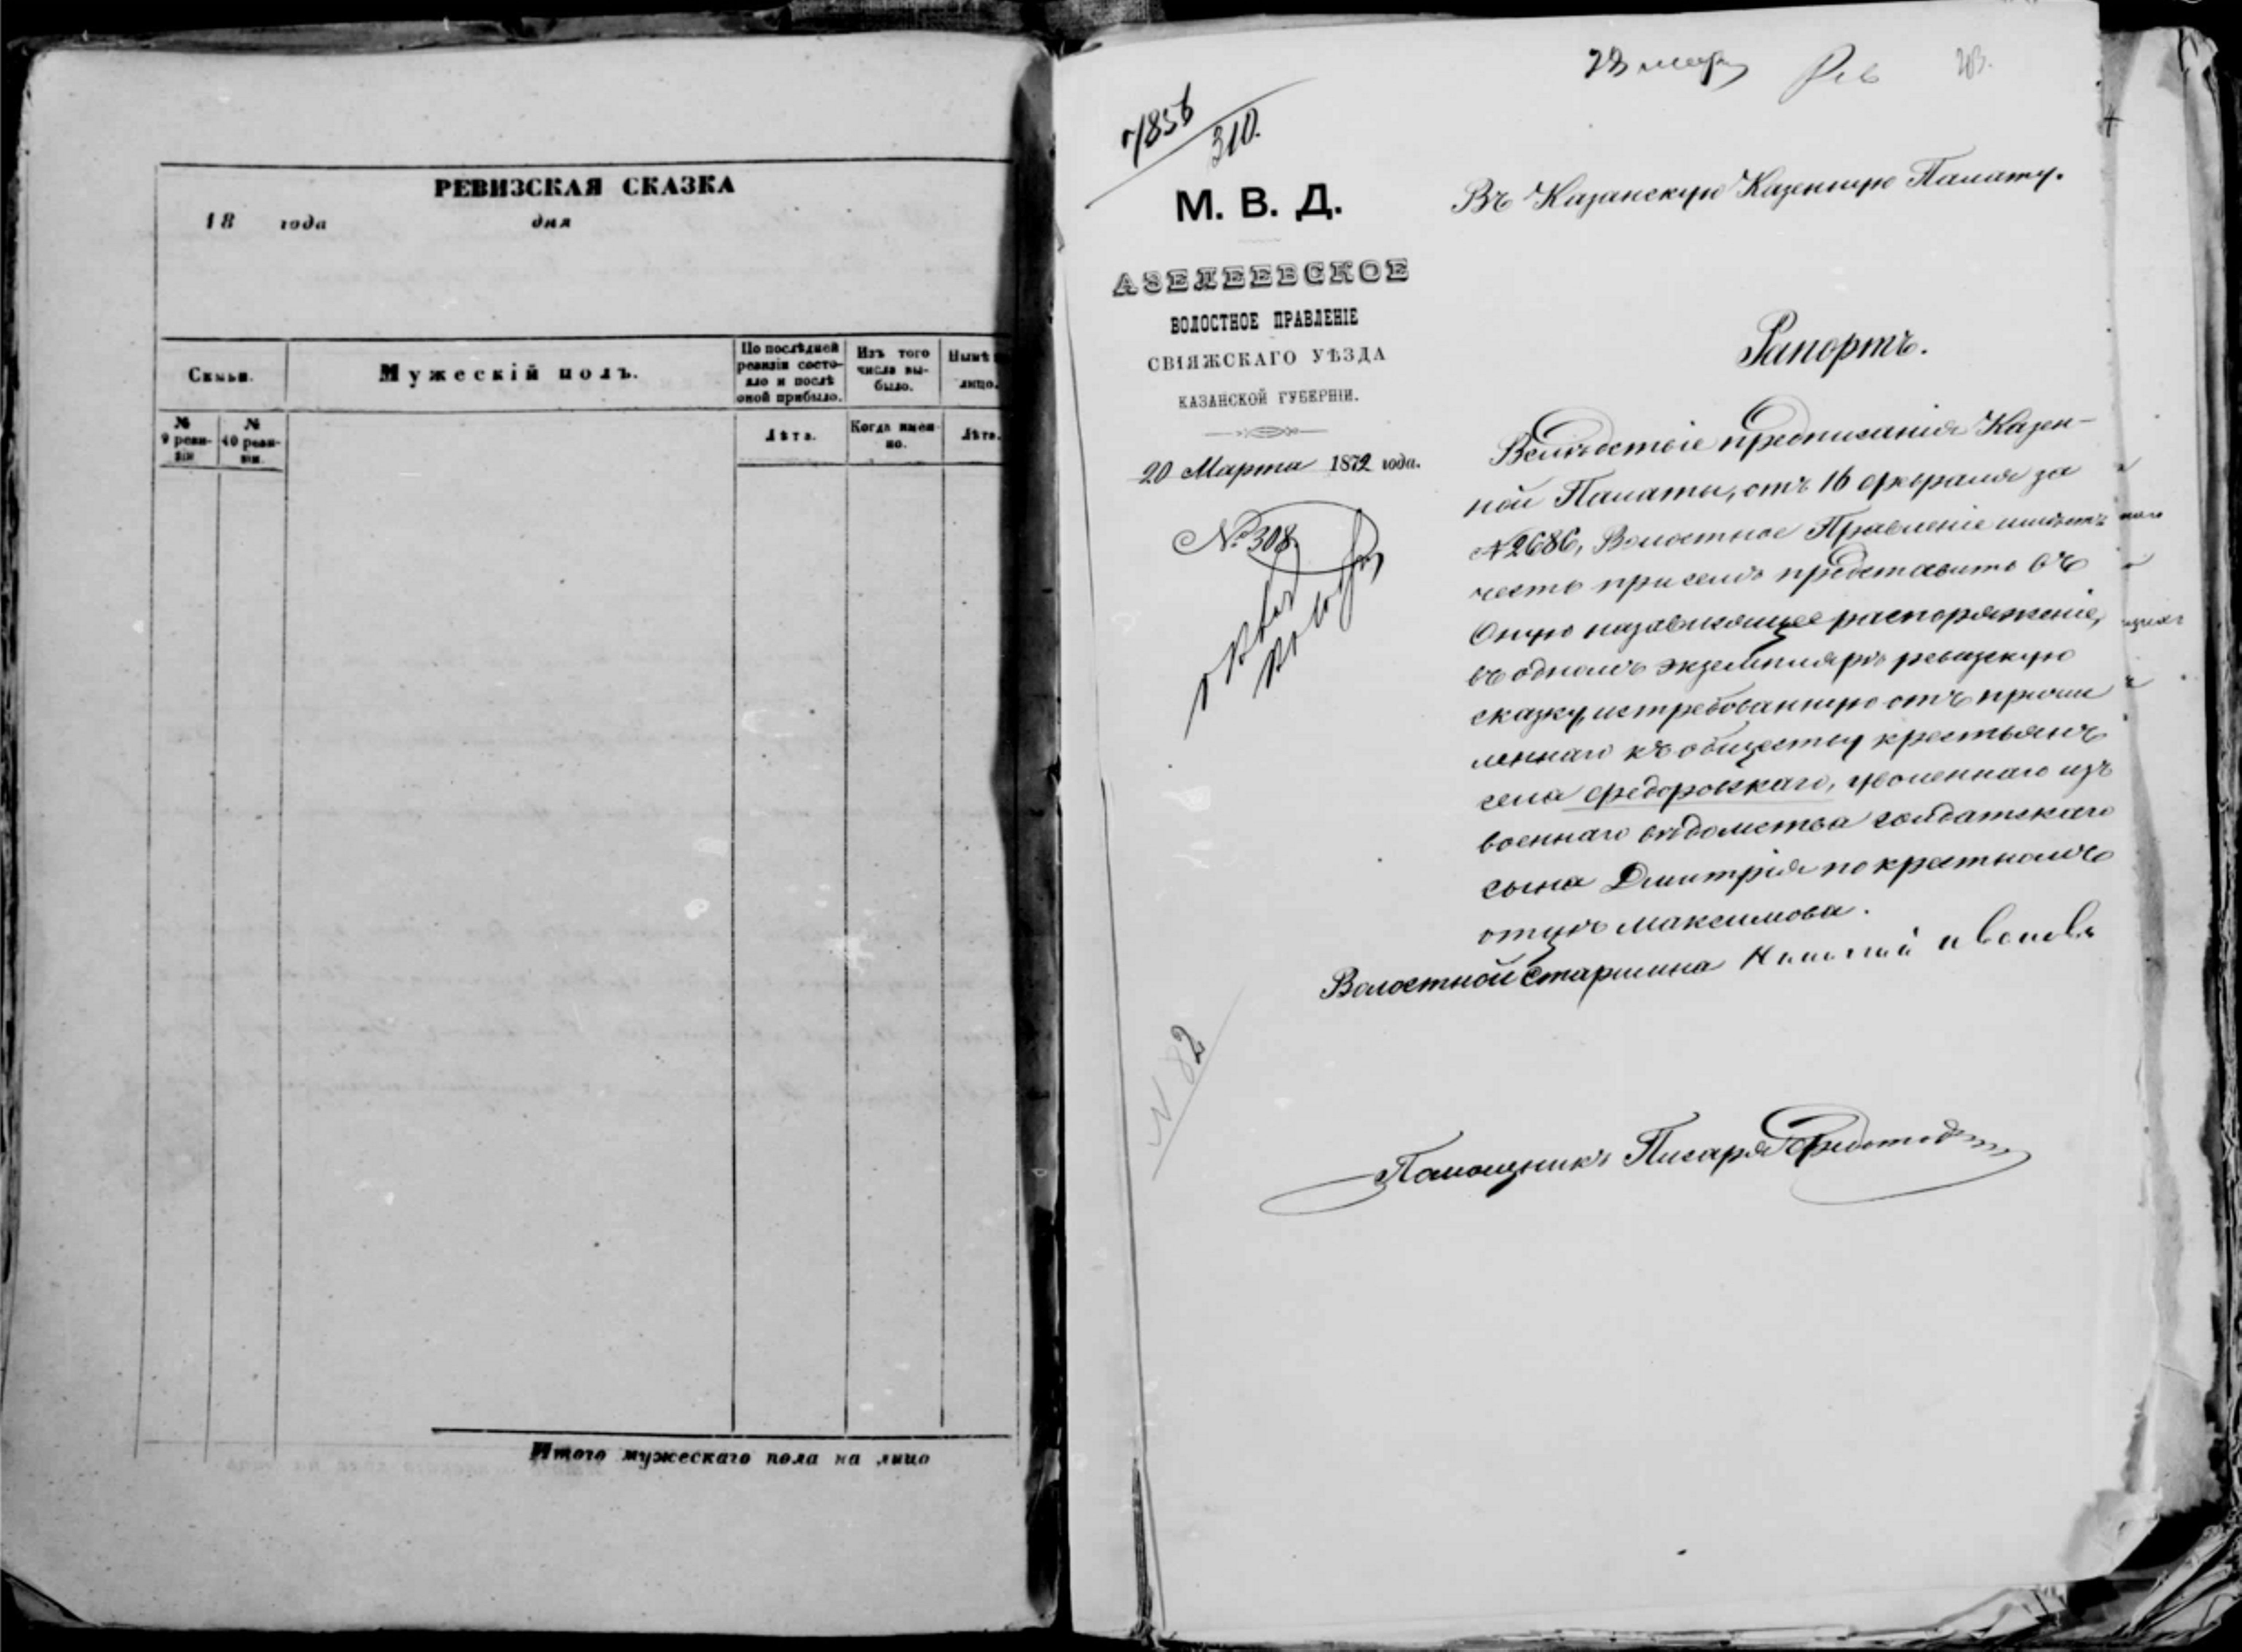 РЕВИЗСКАЯ СКАЗКА
18 года дня
Семьи.
Мужескій полъ.
По послѣдней ревизіи состояло и послѣ оной прибыло.
Изъ того числа выбыло.
Нынѣ
лицо.
№ 9 ревизіи
№ 10 ревизіи.
Лѣта.
Когда именно.
Лѣта.
Итого мужескаго пола на лицо
23 мар
7856
310.
М. В. Д.
АЗЕЛЕЕВСКОЕ
ВОЛОСТНОЕ ПРАВЛЕНІЕ
СВІЯЖСКАГО УѢЗДА
КАЗАНСКОЙ ГУБЕРНІИ.
20 Марта 1872 года.
№ 308.
Въ Казанскую Казенную Палату.
Рапортъ.
Вслѣдствіе предписанія Казен-
ной Палаты, отъ 16 февраля за
№ 2686, Волостное Правленіе имѣетъ
честь при семъ представить въ
Оную назависящее распоряженіе,
въ одномъ экземплярѣ ревизскую
сказку, истребованную отъ причи
леннаго къ обществу крестьянъ
села Федоровскаго, уволеннаго изъ
военнаго вѣдомства солдатскаго
сына Дмитрія по крестномъ
отцѣ Максимова.
Волостной Старшина
Помощникъ Писаря
№ 82